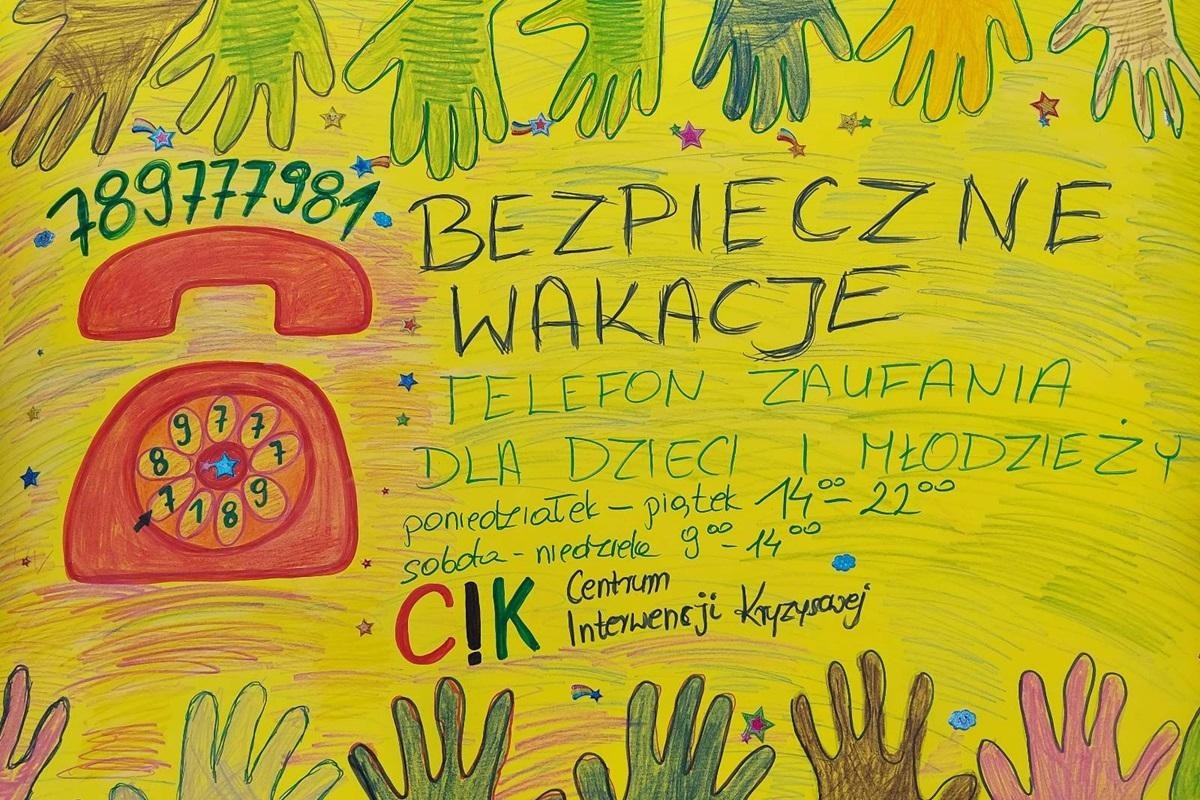 789777981
BEZPIECZNE
WAKACJE
TELEFON ZAUFANIA
DLA DZIECI I MŁODZIEŻY
poniedziałek – piątek 14⁰⁰ – 22⁰⁰
sobota – niedziela 9⁰⁰ – 14⁰⁰
C!K
Centrum
Interwencji Kryzysowej
7 8 9 7 7 7 9 8 1